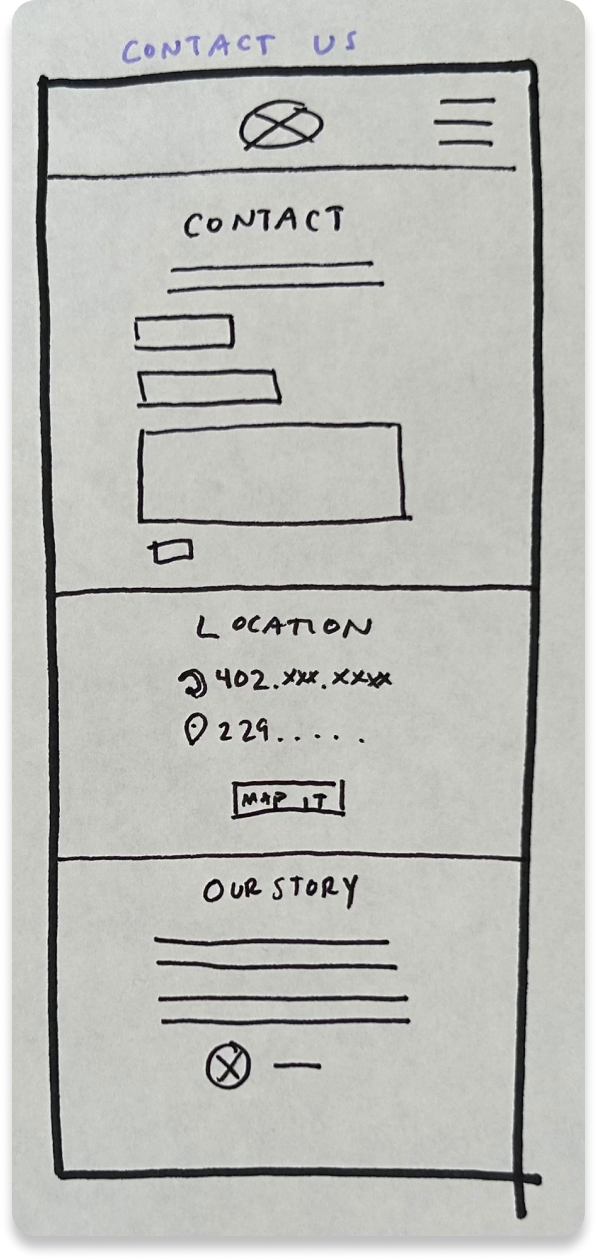 CONTACT US
CONTACT
LOCATION
402.xxx.xxxx
229.....
MAP IT
OUR STORY